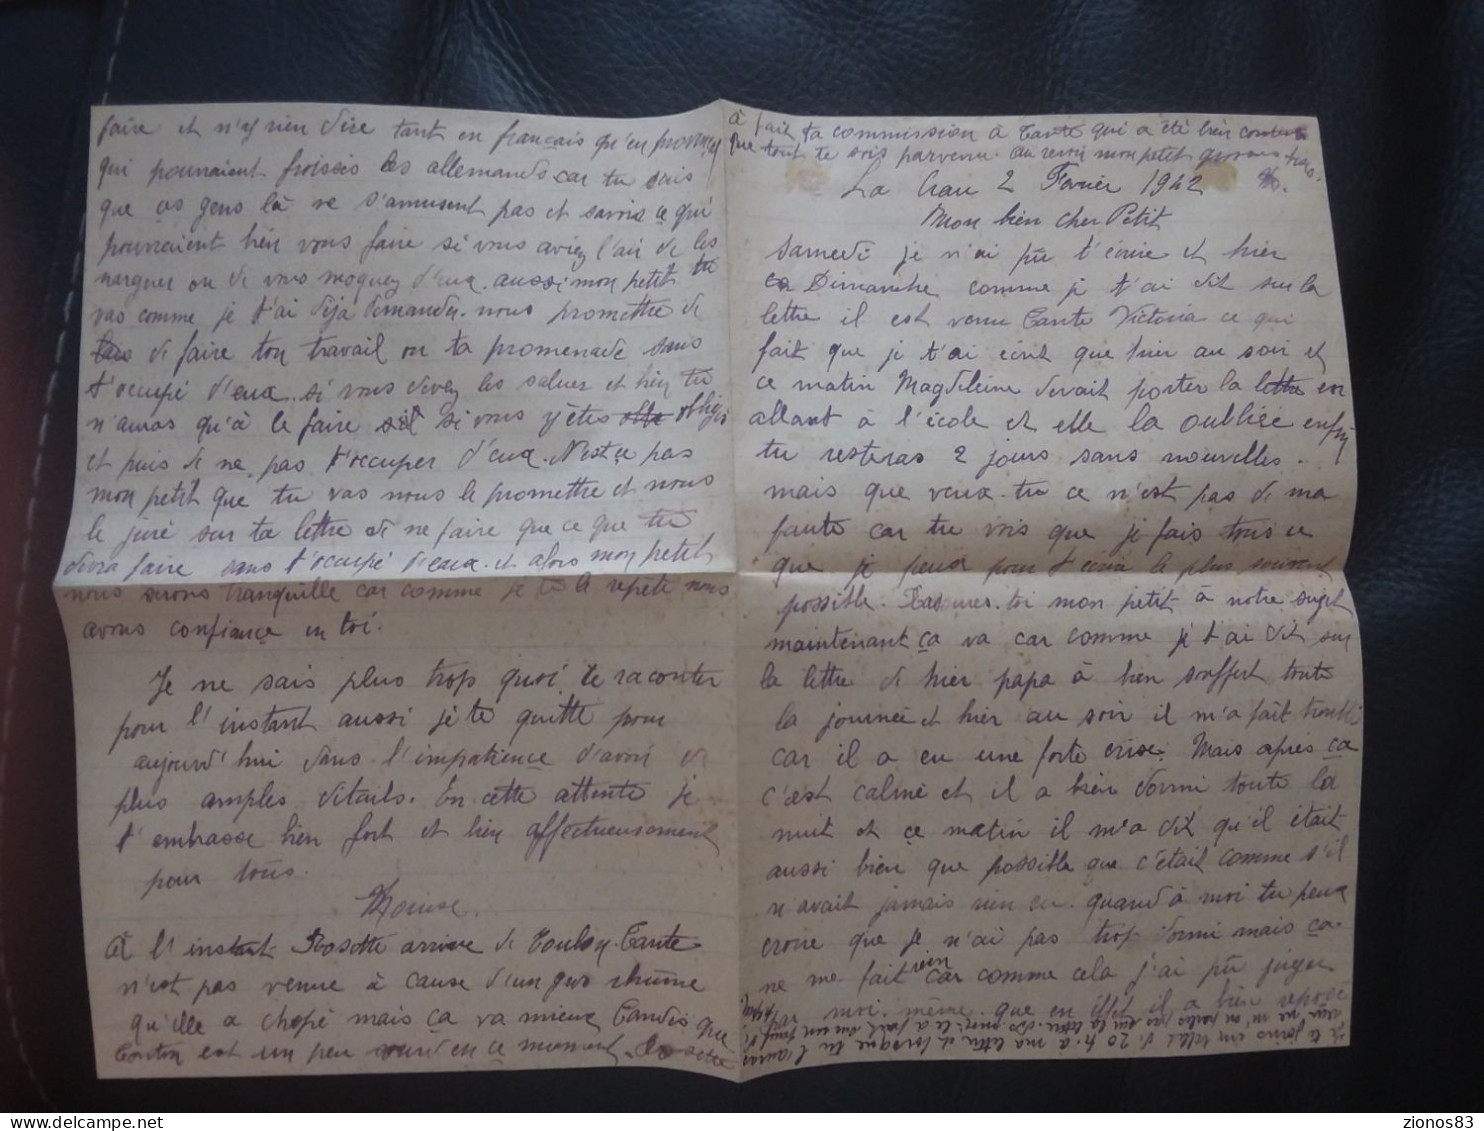 La Crau 2 Fevrier 1942
Mon bien cher Petit
Samedi je n'ai pû t'écrire et hier
Dimanche comme je t'ai dit sur la
lettre il est venu Tante Victoria ce qui
fait que je t'ai écrit que hier au soir et
ce matin Magdeleine devait porter la lettre en
allant à l'école et elle la oubliée enfin
tu resteras 2 jours sans nouvelles.
mais que veux-tu ce n'est pas de ma
faute car tu vois que je fais tous ce
que je peux pour t'écrire le plus souvent
possible. Rassures-toi mon petit à notre sujet
maintenant ça va car comme je t'ai dit sur
la lettre de hier papa à bien souffert toute
la journée et hier au soir il m'a fait
car il a eu une forte crise. Mais après ça
c'est calmé et il a bien dormi toute la
nuit et ce matin il m'a dit qu'il était
aussi bien que possible que c'était comme s'il
n'avait jamais rien eu. quand à moi tu peux
croire que je n'ai pas trop dormi mais ça
ne me fait rien car comme cela j'ai pû juger
moi-même que en effet il a bien reposé
je te joins un billet de 20 f. à ma lettre et lorsque tu l'auras
faire et n'ej rien dire tant en français qu'en provençal
qui pourraient froissés les allemands car tu sais
que ces gens là ne s'amusent pas et savoir ce qui
pourraient bien vous faire si vous aviez l'air de les
narguer ou de vous moquez d'eux. aussi mon petit tu
vas comme je t'ai déja demandu nous promettre de
de faire ton travail ou ta promenade sans
t'occupé d'eux. si vous devez les saluer et bien tu
n'auras qu'à le faire si vous y êtes obligés
et puis de ne pas t'occuper d'eux. N'est ce pas
mon petit que tu vas nous le promettre et nous
le juré sur ta lettre de ne faire que ce que tu
devra faire sans t'occupé d'eux. et alors mon petit
nous serons tranquille car comme je te la repète nous
avons confiance en toi.
Je ne sais plus trop quoi te raconter
pour l'instant aussi je te quitte pour
aujourd'hui dans l'impatience d'avoir de
plus amples détails. En cette attente je
t'embrasse bien fort et bien affectueusement
pour tous.
A l'instant Rosette arrive de Toulon. Tante
n'est pas venue à cause d'un gros rhûme
qu'elle a chopé mais ça va mieux Tandis que
Tonton est un peu sourd en ce moment. Rosette
à fait ta commission à Tante qui a été bien contente
que tout te sois parvenu. au revoir mon petit